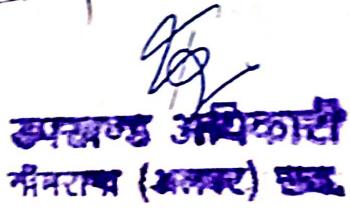 उपखण्ड अधिकारी
(अलवर) राज.